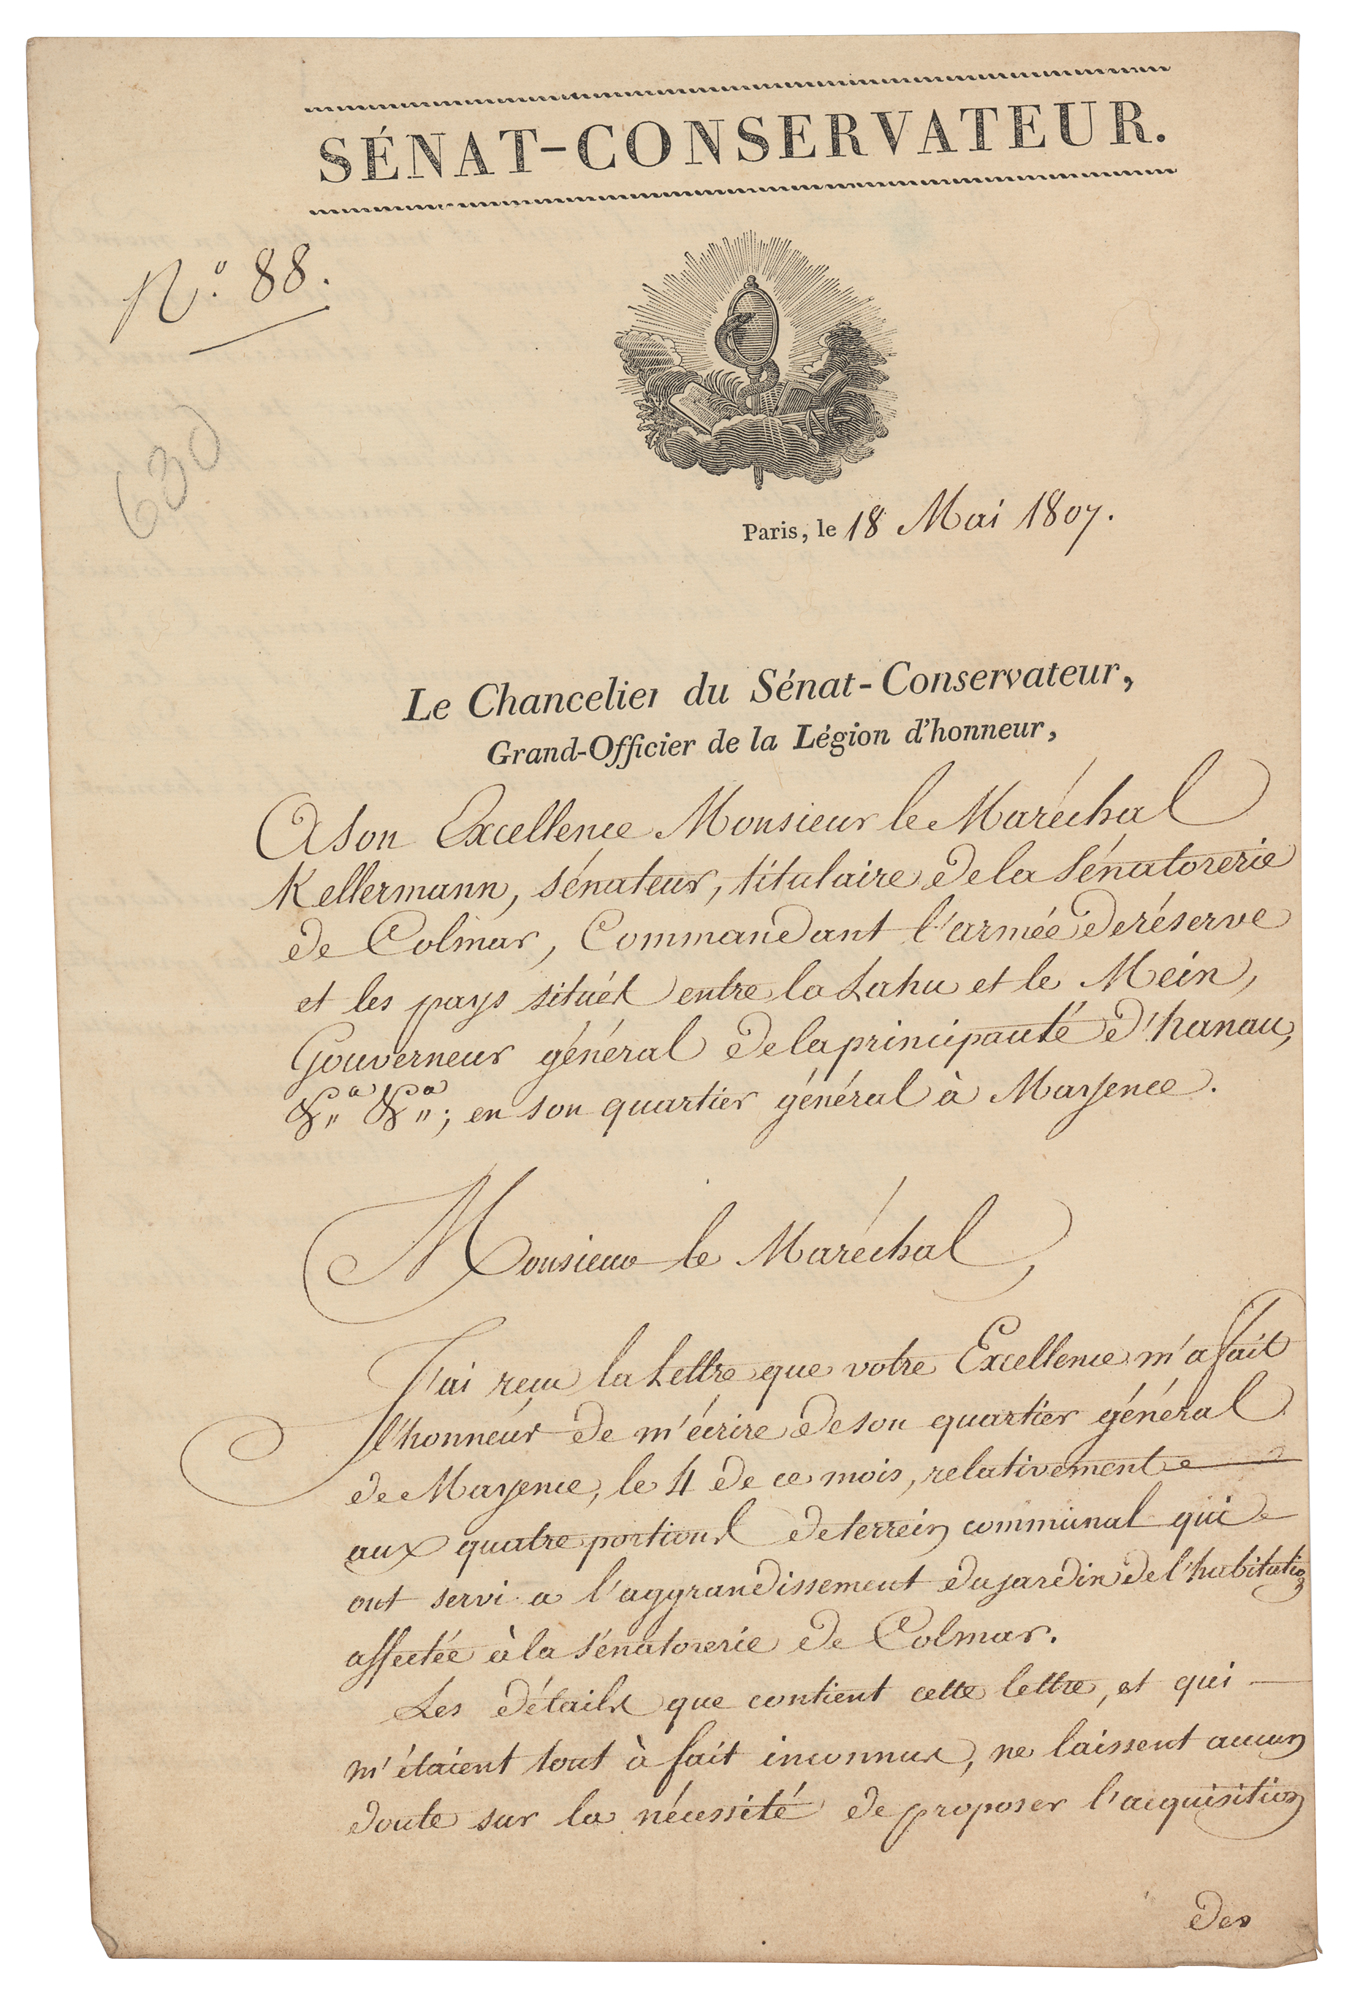 SÉNAT-CONSERVATEUR.
N.º 88.
630
Paris, le 18 Mai 1807.
Le Chancelier du Sénat-Conservateur,
Grand-Officier de la Légion d'honneur,
A son Excellence Monsieur le Maréchal
Kellermann, sénateur, titulaire de la sénatorerie
de Colmar, Commandant l'armée de réserve
et les pays situés entre la Lahn et le Mein,
Gouverneur général de la principauté d'hanau,
&a &a; en son quartier général à Mayence.
Monsieur le Maréchal,
J'ai reçu la Lettre que votre Excellence m'a fait
l'honneur de m'écrire de son quartier général
de Mayence, le 4 de ce mois, relativement
aux quatre portions de terrein communal qui
ont servi a l'aggrandissement du jardin de l'habitation
affectée à la sénatorerie de Colmar.
Les détails que contient cette lettre, et qui
m'étaient tout à fait inconnus, ne laissent aucun
doute sur la nécessité de proposer l'acquisition
des